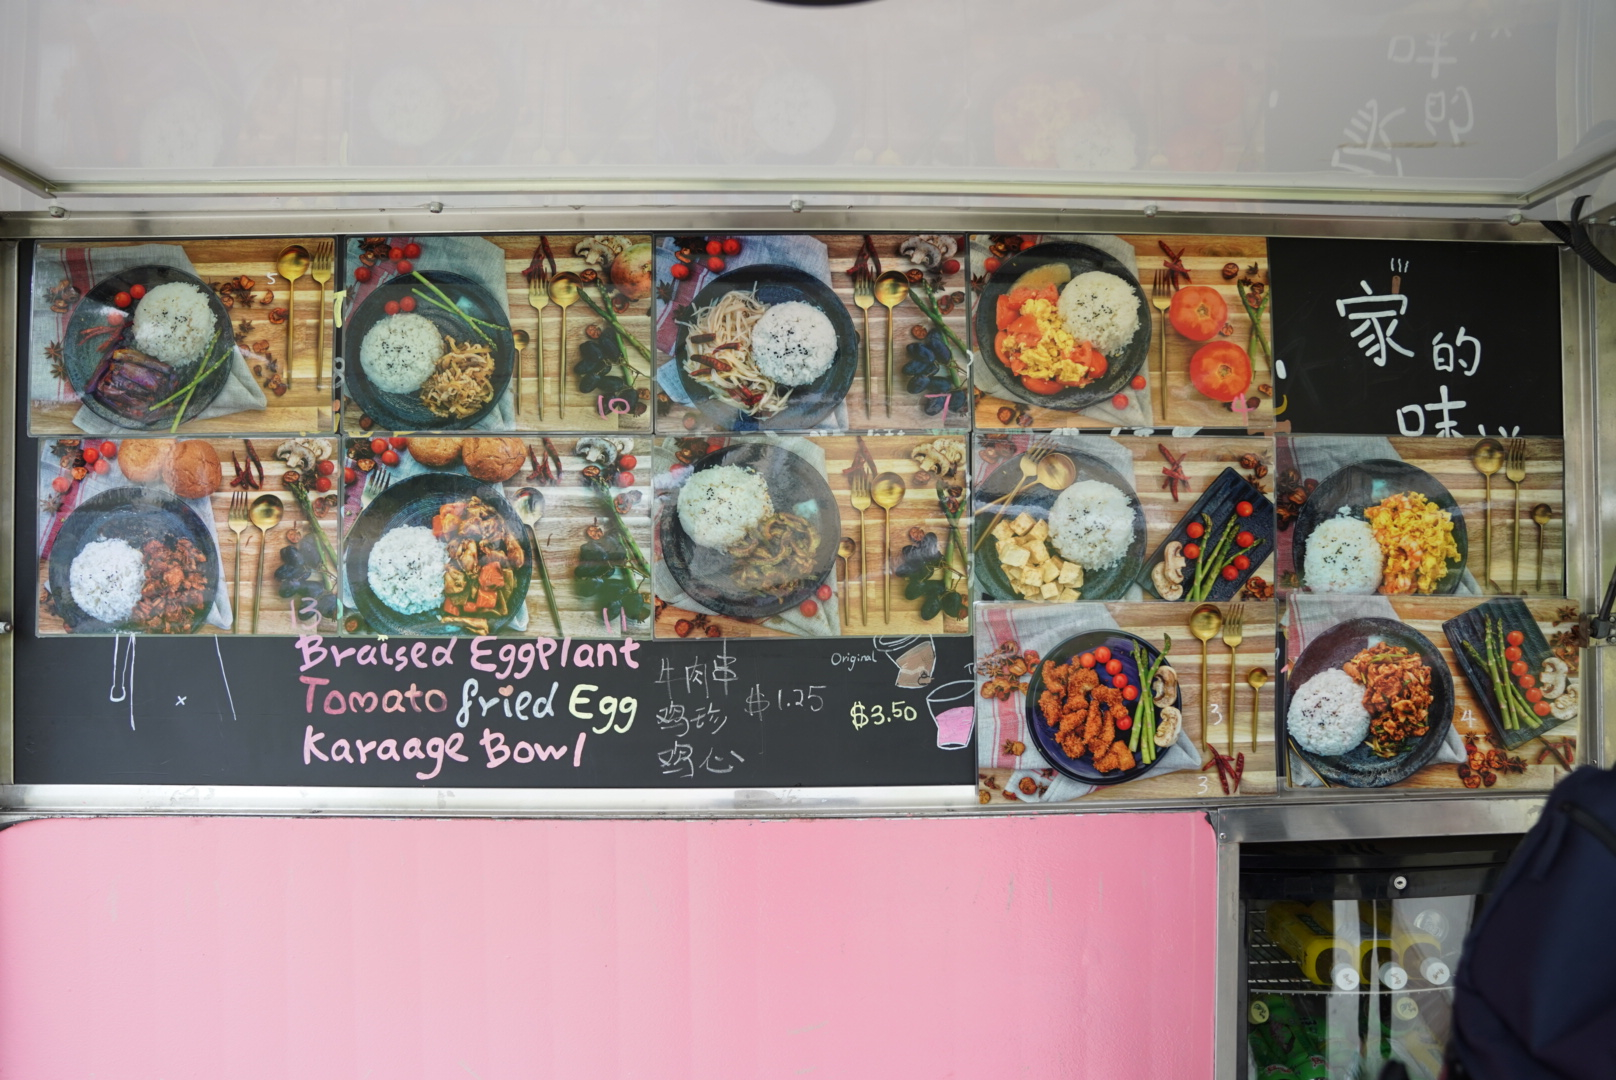 家
的
味
5
10
7
4
13
11
Braised EggPlant
Tomato fried Egg
Karaage Bowl
牛肉串
鸡珍 $1.25
鸡心
Original
$3.50
3
3
4